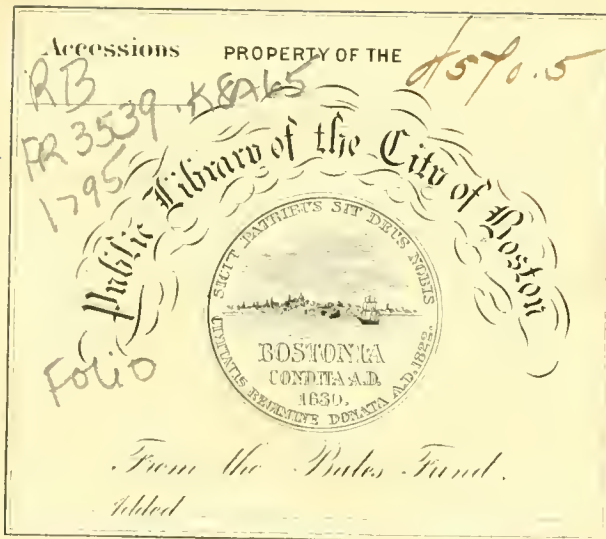 Accessions PROPERTY OF THE
RB
PR 3539 .K8A65
1795
Public Library of the City of Boston
SICUT PATRIBUS SIT DEUS NOBIS
BOSTONIA
CONDITA A.D.
1630.
CIVITATIS REGIMINE DONATA A.D. 1822.
Folio
From the Bates Fund.
Added